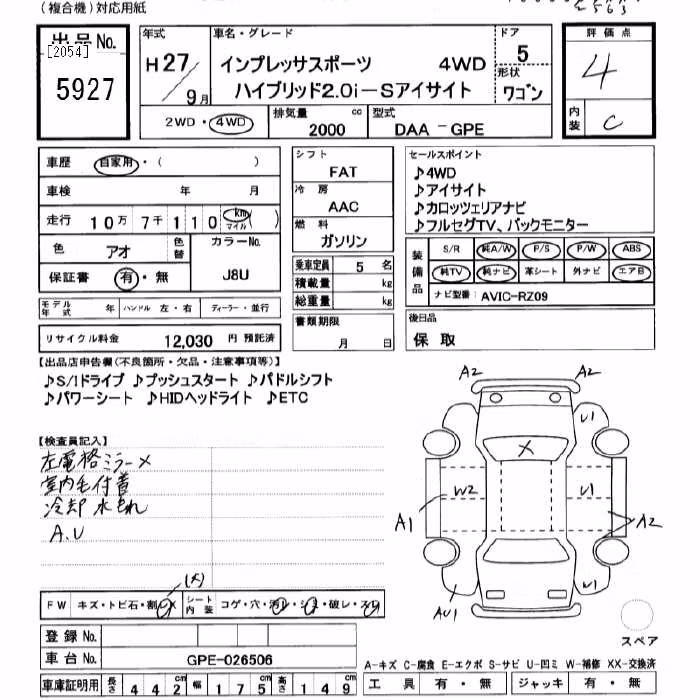 (複合機)対応用紙
出品No.
[2054]
5927
年式
H27/9月
車名・グレード
インプレッサスポーツ 4WD
ハイブリッド2.0i-Sアイサイト
ドア
5
形状
ワゴン
評価点
4
内装 C
2WD・4WD
排気量 2000 cc
型式 DAA-GPE
車歴 自家用・( )
車検 年 月
走行 10万7千110 km マイル ( )
色 アオ
色替
カラーNo.
J8U
保証書 有・無
シフト
FAT
冷房
AAC
燃料
ガソリン
乗車定員 5 名
積載量 kg
総重量 kg
セールスポイント
♪4WD
♪アイサイト
♪カロッツェリアナビ
♪フルセグTV、バックモニター
装備品
S/R 純A/W P/S P/W ABS
純TV 純ナビ 革シート 外ナビ エアB
ナビ型番: AVIC-RZ09
モデル年式 年 ハンドル 左・右 ディーラー・並行
リサイクル料金 12,030 円 預託済
書類期限
月 日
後日品
保取
【出品店申告欄(不良箇所・欠品・注意事項等)】
♪S/Iドライブ ♪プッシュスタート ♪パドルシフト
♪パワーシート ♪HIDヘッドライト ♪ETC
【検査員記入】
左電格ミラーメ
室内毛付着
冷却水もれ
A.U
(大)
FW キズ・トビ石・割・X シート内装 コゲ・穴・汚レ・シミ・破レ・スレ
登録No.
車台No. GPE-026506
車庫証明用 長さ 442 cm 幅 175 cm 高さ 149 cm
A2 A2
U1
X
W2 U1
A1 A2
U1
AU1
スペア
A-キズ C-腐食 E-エクボ S-サビ U-凹ミ W-補修 XX-交換済
工具 有・無 ジャッキ 有・無